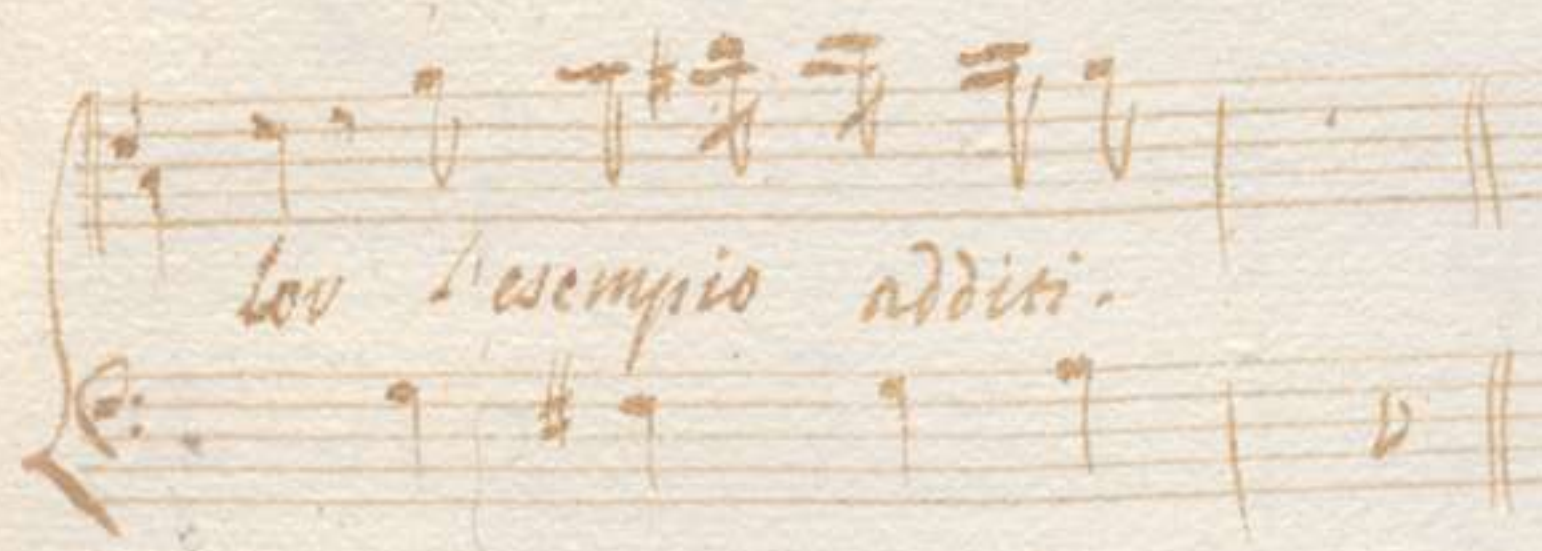 lor l'esempio additi.